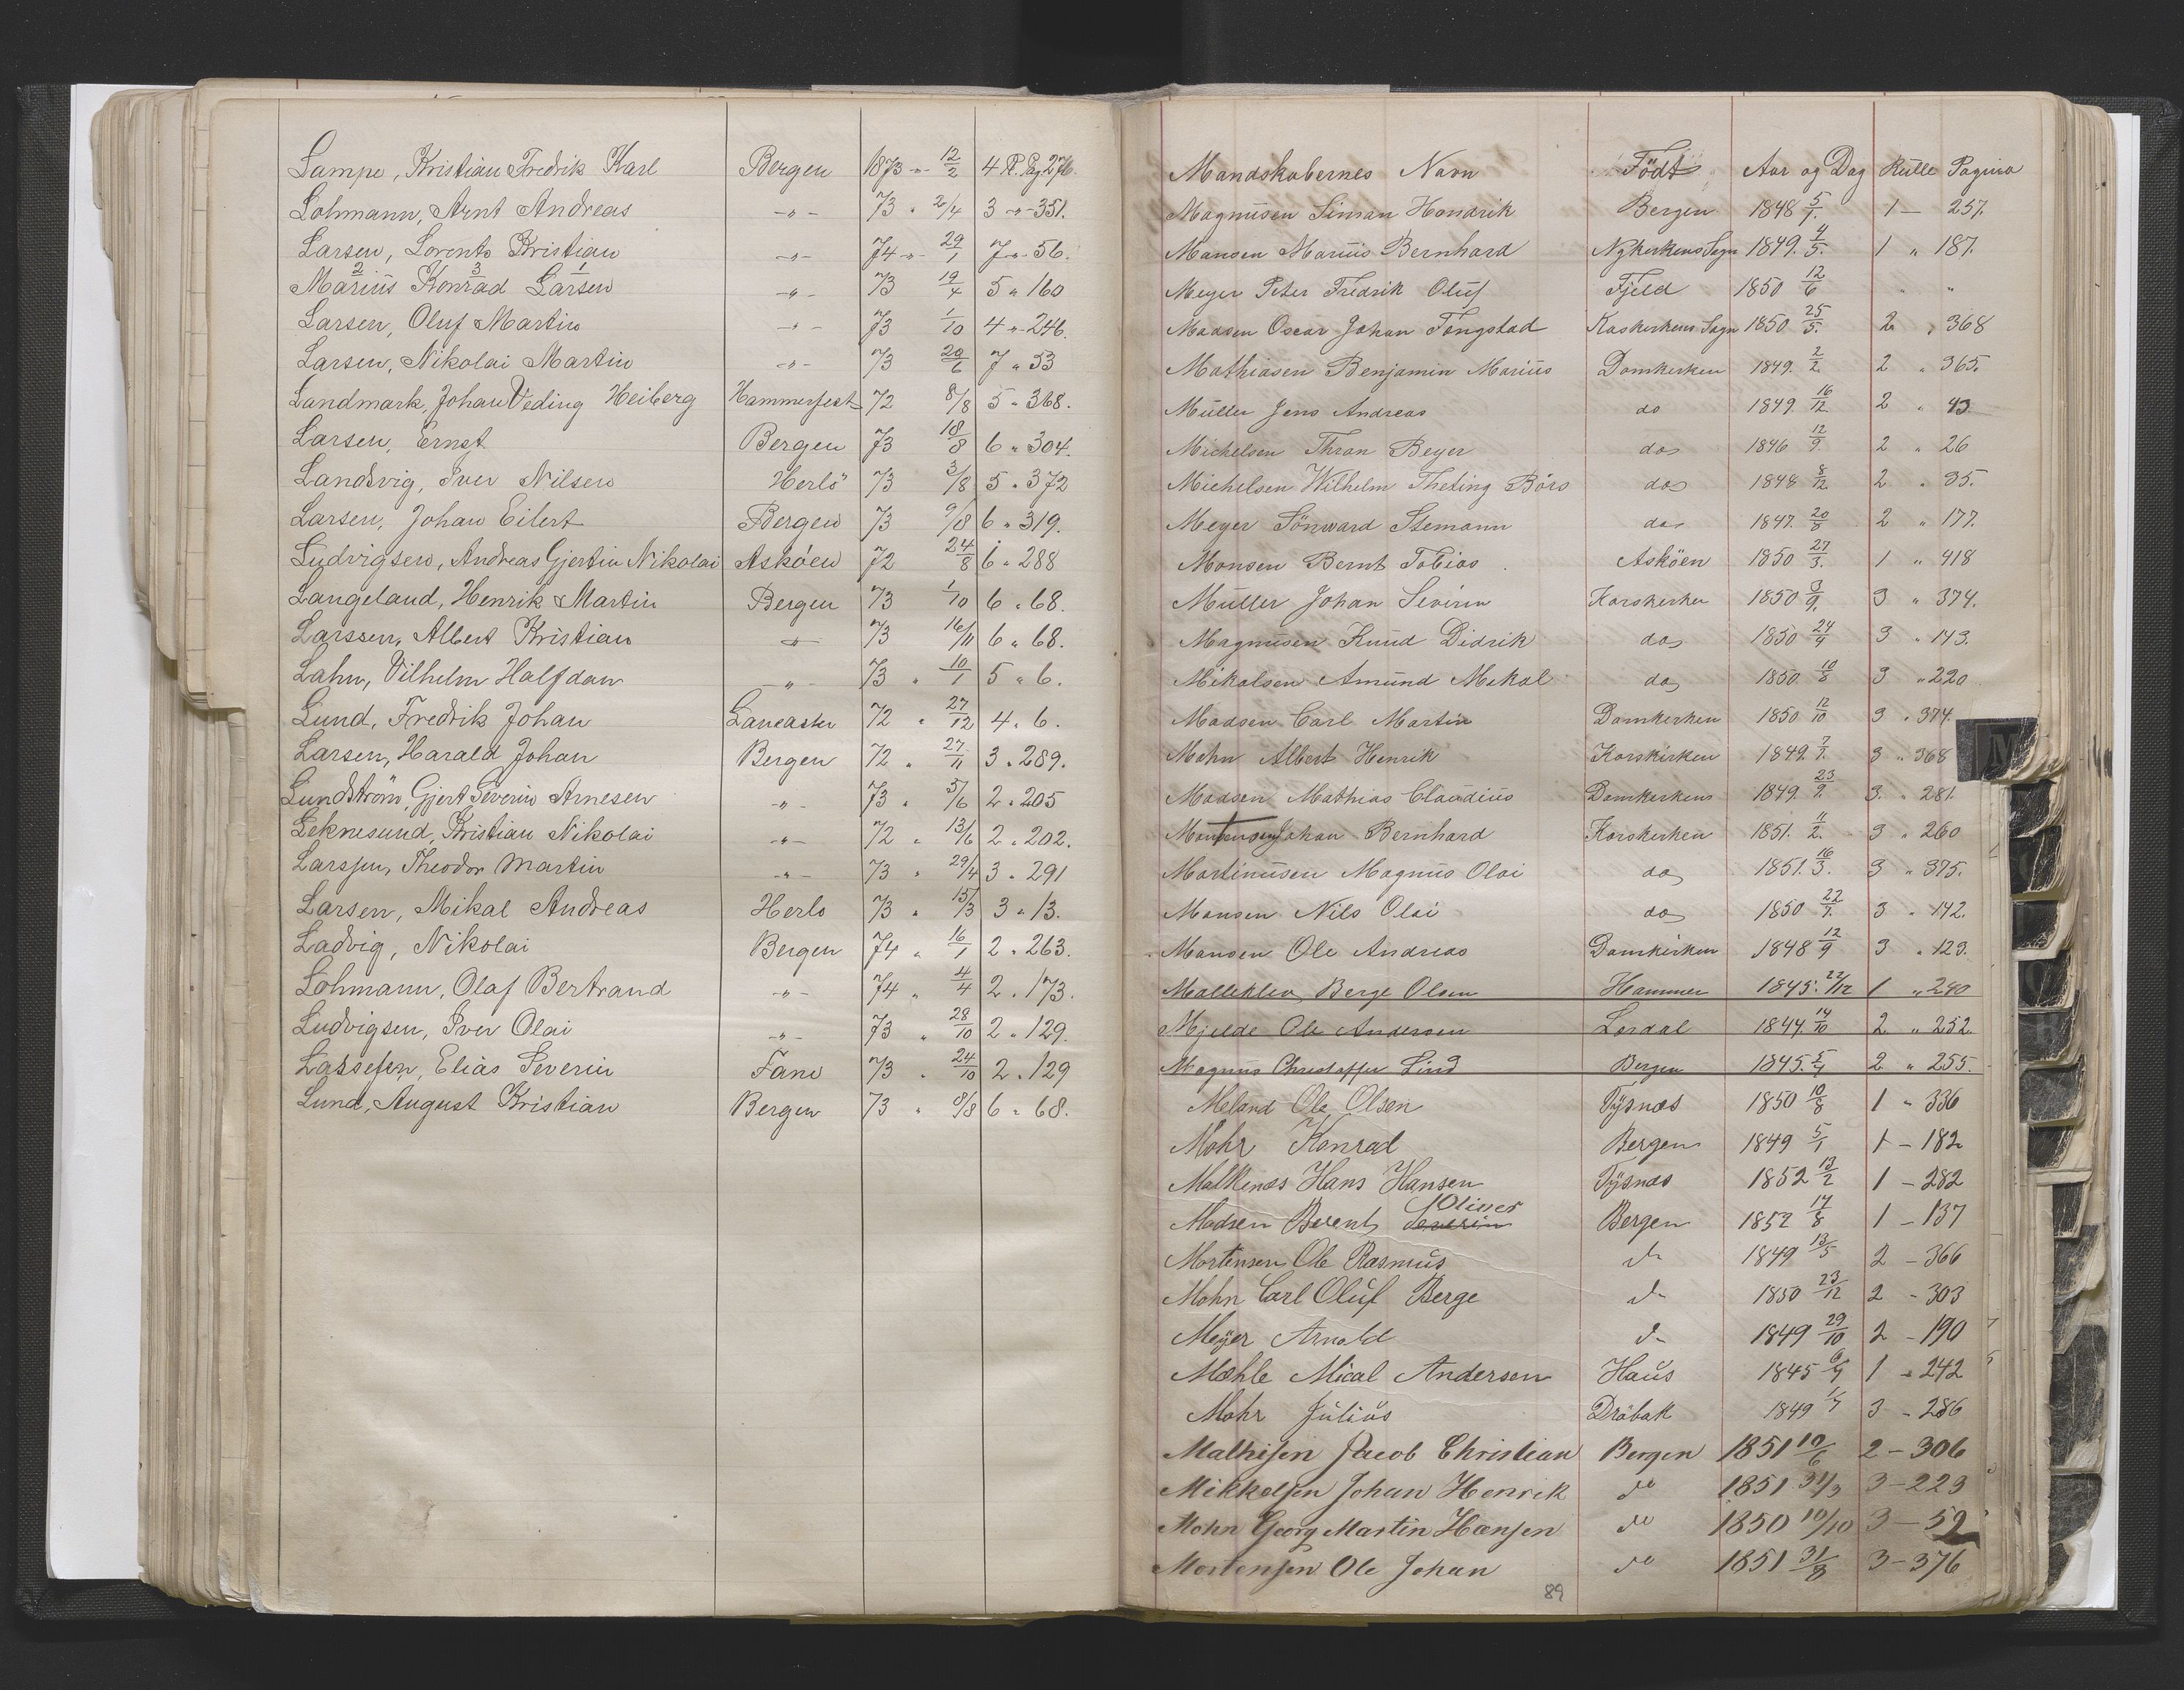 Lampe, Kristian Fredrik Karl Bergen 1873 -"- 12/2 4 R. Pag 276.
Lohmann, Arnt Andreas -"- 73 " 2/4 3 -"- 351.
Larsen, Lorentz Kristian -"- 74 -"- 29/1 7 -"- 56.
2 3 1
Marius Konrad Larsen -"- 73 19/4 5 " 160
Larsen, Oluf Martin -"- 73 1/10 4 -"- 246.
Larsen, Nikolai Martin -"- 73 20/6 7 " 53
Landmark, Johan Veding Heiberg Hammerfest 72 8/8 5 " 368.
Larsen, Ernst Bergen 73 18/8 6 " 304.
Landsvig, Iver Nilsen Herlö 73 3/8 5 " 372
Larsen, Johan Eilert Bergen 73 9/8 6 " 319.
Ludvigsen, Andreas Gjertin Nikolai Asköen 72 24/8 6 " 288
Langeland, Henrik Martin Bergen 73 1/10 6 " 68.
Larssen, Albert Kristian -"- 73 16/11 6 " 68.
Lahn, Vilhelm Halfdan -"- 73 " 10/1 5 " 6.
Lund, Fredrik Johan Lancaster 72 " 27/12 4 " 6.
Larsen, Harald Johan Bergen 72 " 27/11 3 " 289.
Lundström, Gjert Severin Arnesen -"- 73 " 5/6 2 " 205
Leknesund, Kristian Nikolai -"- 72 " 13/6 2 " 202.
Larssen, Theodor Martin -"- 73 " 29/4 3 " 291
Larsen, Mikal Andreas Herlo 73 " 15/3 3 " 13.
Ladvig, Nikolai Bergen 74 " 16/1 2 " 263.
Lohmann, Olaf Bertrand -"- 74 " 4/4 2 " 173.
Ludvigsen, Iver Olai -"- 73 " 28/10 2 " 129.
Lassesen, Elias Severin Fane 73 " 24/10 2 " 129
Lund, August Kristian Bergen 73 " 8/8 6 " 68.
Mandskabernes Navn Födt Aar og Dag Rulle Pagina
Magnusen Siman Hendrik Bergen 1848 5/7. 1 — 257.
Monsen Marius Bernhard Nykirkens Sogn 1849. 4/5. 1 " 187.
Meyer Peter Fredrik Oluf Fjeld 1850 12/6 " "
Madsen Oscar Johan Tongstad Korskirkens Sogn 1850 25/5. 2 " 368
Mathiasen Benjamin Marius Domkirken 1849. 2/2. 2 " 365.
Müller Jens Andreas do 1849. 16/12 2 " 43
Michelsen Thran Beyer do 1846 12/9. 2 " 26
Michelsen Wilhelm Theting Börs do 1848 8/12 2 " 35.
Meyer Sönward Stemann do 1847. 20/8 2 " 177.
Monsen Bernt Tobias Asköen 1850 27/3. 1 " 418
Müller Johan Severin Korskirken 1850 3/9. 3 " 374.
Magnusen Knud Didrik do 1850 24/9 3 " 143.
Mikalsen Amund Mikal do 1850 10/8 3 " 220
Madsen Carl Martin Domkirken 1850 12/10 3 " 374.
Mohn Albert Henrik Korskirken 1849. 7/7. 3 " 368
Madsen Mathias Claudius Domkirken 1849. 23/9. 3. " 281.
Johan Bernhard Korskirken 1851. 11/2. 3 " 260
Martinusen Magnus Olai do 1851. 16/3. 3 " 375.
Monsen Nils Olai do 1850 22/7. 3 " 142.
Monsen Ole Andreas Domkirken 1848 12/9 3 " 123.
Malleklev Berge Olsen Hammer 1845. 22/12 1 " 240
Mjelde Ole Andersen Lerdal 1844. 14/10 2 " 252.
Magnus Christoffer Lind Bergen 1845. 5/4 2 " 255.
Meland Ole Olsen Tysnæs 1850 10/8 1 " 336
Mohr Konrad Bergen 1849 5/1 1 — 182
Malkenæs Hans Hansen Tysnæs 1852 13/2 1 — 282
Madsen Berent Severin Oliver Bergen 1852 14/8 1 — 137
Mortensen Ole Rasmus do 1849 13/5 2 — 366
Mohn Carl Oluf Berge do 1850 23/12 2 — 303
Meyer Arnold do 1849 29/10 2 — 190
Mæhle Mical Andersen Haus 1845 6/9 1 — 242
Mohr Julius Dröbak 1849 1/7 3 — 286
Mathisen Jacob Christian Bergen 1851 10/6 2 — 306
Mikkelsen Johan Henrik do 1851 31/3 3 — 229
Mohn Georg Martin Hansen do 1850 10/10 3 — 52
Mortensen Ole Johan do 1851 31/8 3 — 376
89
M